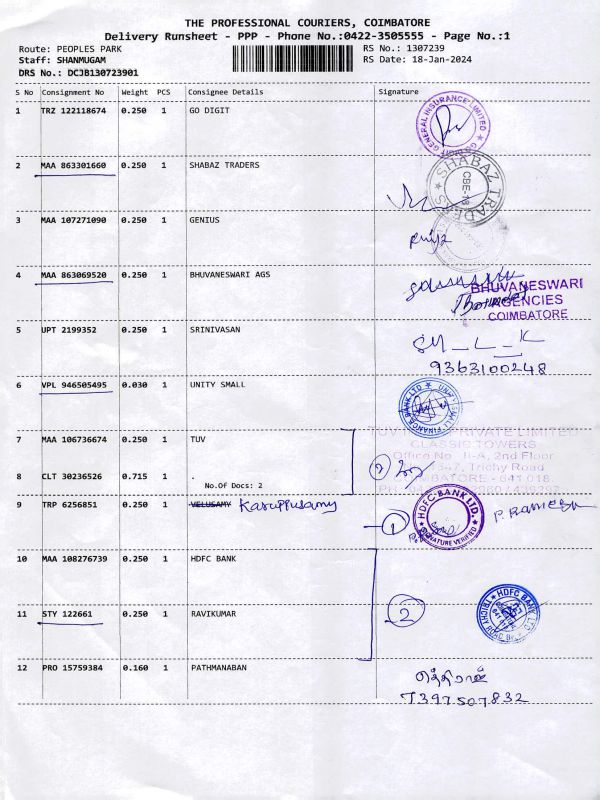 THE PROFESSIONAL COURIERS, COIMBATORE
Delivery Runsheet - PPP - Phone No.:0422-3505555 - Page No.:1
Route: PEOPLES PARK RS No.: 1307239
Staff: SHANMUGAM RS Date: 18-Jan-2024
DRS No.: DCJB130723901
S No Consignment No Weight PCS Consignee Details Signature
1 TRZ 122118674 0.250 1 GO DIGIT
GENERAL INSURANCE LIMITED
2 MAA 863301660 0.250 1 SHABAZ TRADERS
SHABAZ TRADERS
CBE-18
3 MAA 107271090 0.250 1 GENIUS
4 MAA 863069520 0.250 1 BHUVANESWARI AGS
BHUVANESWARI
AGENCIES
COIMBATORE
5 UPT 2199352 0.250 1 SRINIVASAN
9363100248
6 VPL 946505495 0.030 1 UNITY SMALL
7 MAA 106736674 0.250 1 TUV
PRIVATE LIMITED
CLASSIC TOWERS
2nd Floor
Trichy Road
641 018
8 CLT 30236526 0.715 1 .
No.Of Docs: 2
2
9 TRP 6256851 0.250 1 VELUSAMY Karuppusamy
1
HDFC BANK LTD.
SIGNATURE VERIFIED
P. Ramesh
10 MAA 108276739 0.250 1 HDFC BANK
11 STY 122661 0.250 1 RAVIKUMAR
2
HDFC BANK LTD
12 PRO 15759384 0.160 1 PATHMANABAN
7397507832